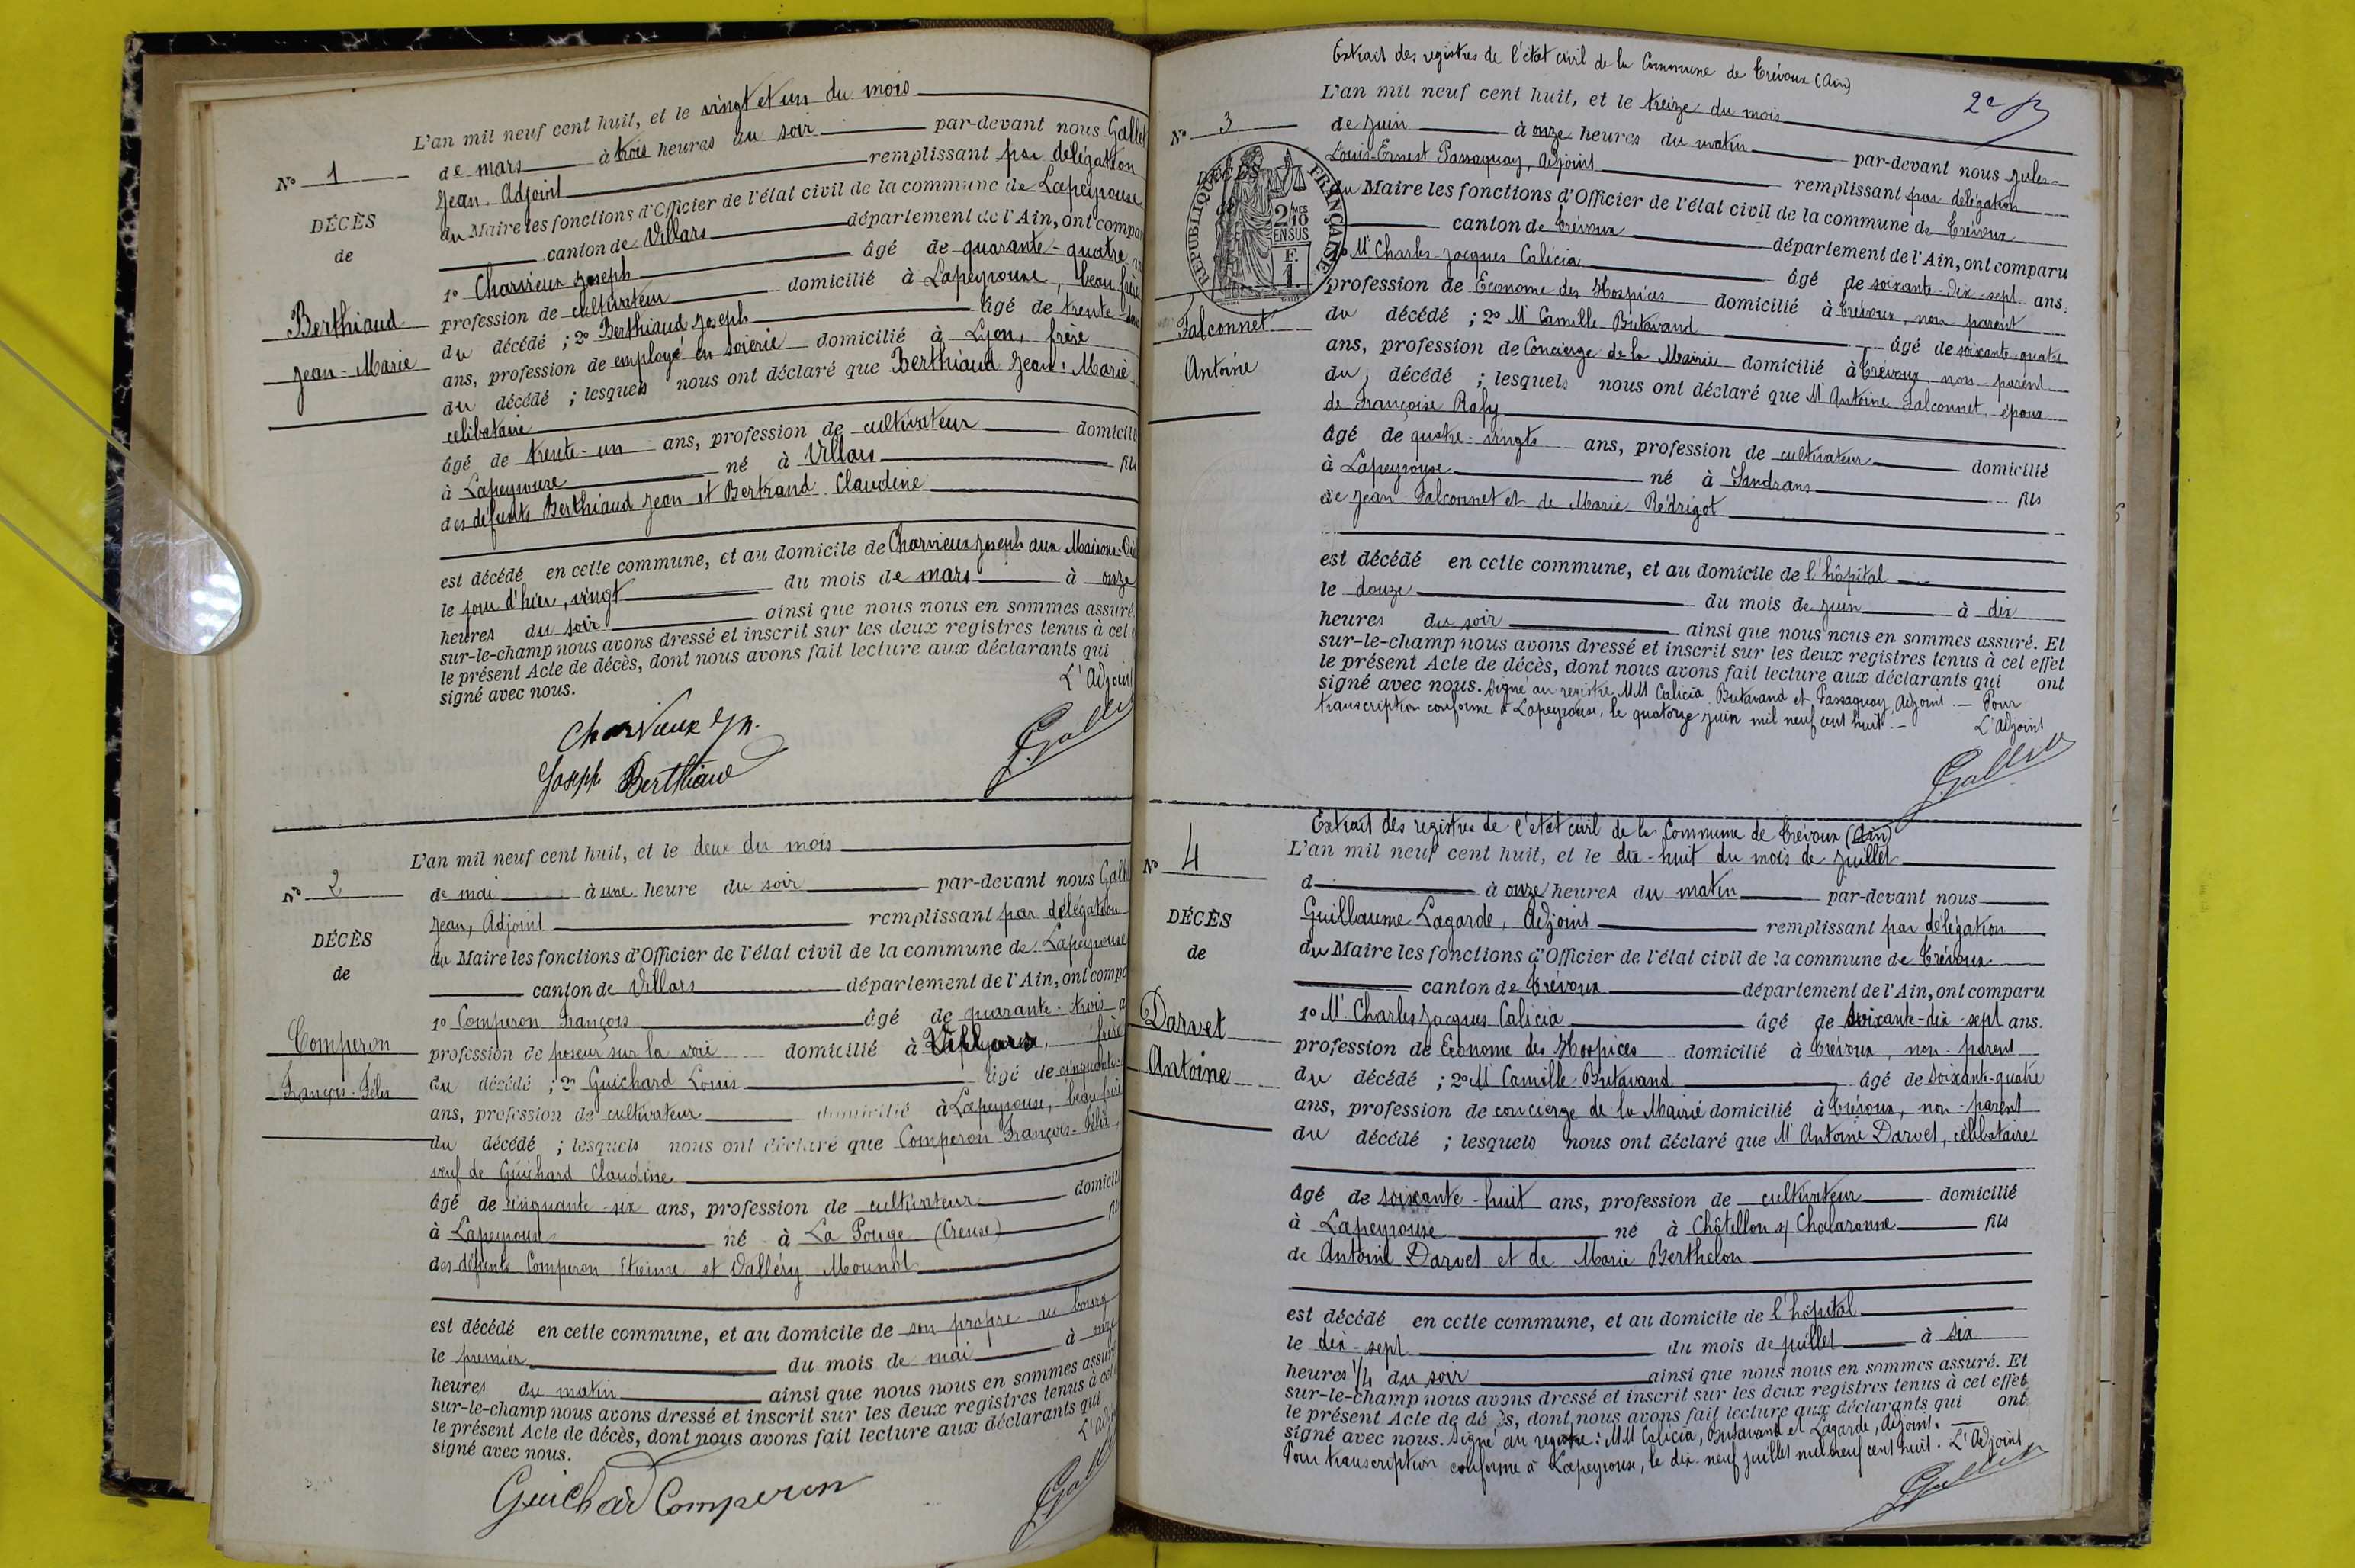 N° 1
DÉCÈS
de
Berthiaud
Jean-Marie
L'an mil neuf cent huit, et le vingt et un du mois
de mars à trois heures du soir par-devant nous Gallet
Jean, Adjoint remplissant par délégation
du Maire les fonctions d'Officier de l'état civil de la commune de Lapeyrouse
canton de Villars département de l'Ain, ont compa
1° Charvieux Joseph âgé de quarante-quatre
profession de cultivateur domicilié à Lapeyrouse, beau frère
du décédé ; 2° Berthiaud Joseph âgé de trente
ans, profession de employé en soierie domicilié à Lyon, frère
du décédé ; lesquels nous ont déclaré que Berthiaud Jean-Marie
célibataire
âgé de trente-un ans, profession de cultivateur domicilié
à Lapeyrouse né à Villars fils
des défunts Berthiaud Jean et Bertrand Claudine
est décédé en cette commune, et au domicile de Charvieux Joseph aux Maisons
le jour d'hier, vingt du mois de mars à onze
heures du soir ainsi que nous nous en sommes assuré
sur-le-champ nous avons dressé et inscrit sur les deux registres tenus à cet
le présent Acte de décès, dont nous avons fait lecture aux déclarants qui
signé avec nous. L'Adjoint
Charvieux Jh.
Joseph Berthiaud
J. Gallet
N° 2
DÉCÈS
de
Comperon
François-Félix
L'an mil neuf cent huit, et le deux du mois
de mai à une heure du soir par-devant nous Gall
Jean, Adjoint remplissant par délégation
du Maire les fonctions d'Officier de l'état civil de la commune de Lapeyrouse
canton de Villars département de l'Ain, ont compa
1° Comperon François âgé de quarante-trois a
profession de poseur sur la voie domicilié à Villars, frère
du décédé ; 2° Guichard Louis âgé de cinquante
ans, profession de cultivateur domicilié à Lapeyrouse, beau frère
du décédé ; lesquels nous ont déclaré que Comperon François-Félix
veuf de Guichard Claudine
âgé de cinquante-six ans, profession de cultivateur domicili
à Lapeyrouse né à La Pouge (Creuse) fil
des défunts Comperon Etienne et Valléry Mounol
est décédé en cette commune, et au domicile de son propre au bourg
le premier du mois de mai à onze
heures du matin ainsi que nous nous en sommes assuré
sur-le-champ nous avons dressé et inscrit sur les deux registres tenus à cet
le présent Acte de décès, dont nous avons fait lecture aux déclarants qui
signé avec nous. L'Adj
Guichard Comperon
J. Gall
Extrait des registres de l'état civil de la Commune de Trévoux (Ain)
2e
N° 3
DÉCÈS
de
RÉPUBLIQUE FRANÇAISE
2 MES
10
EN SUS
F.
1.
Falconnet
Antoine
L'an mil neuf cent huit, et le treize du mois
de juin à onze heures du matin par-devant nous Jules-
Louis-Ernest Passaquay, Adjoint remplissant par délégation
du Maire les fonctions d'Officier de l'état civil de la commune de Trévoux
canton de Trévoux département de l'Ain, ont comparu
1° Mr Charles-Jacques Calicia âgé de soixante-dix-sept ans.
profession de Econome des Hospices domicilié à Trévoux, non-parent
du décédé ; 2° Mr Camille Butavand âgé de soixante-quatre
ans, profession de Concierge de la Mairie domicilié à Trévoux non-parent
du décédé ; lesquels nous ont déclaré que Mr Antoine Falconnet, époux
de Françoise Rafy
âgé de quatre-vingts ans, profession de cultivateur domicilié
à Lapeyrouse né à Sandrans fils
de Jean Falconnet et de Marie Rédrigot
est décédé en cette commune, et au domicile de l'hôpital
le douze du mois de juin à dix
heures du soir ainsi que nous nous en sommes assuré. Et
sur-le-champ nous avons dressé et inscrit sur les deux registres tenus à cet effet
le présent Acte de décès, dont nous avons fait lecture aux déclarants qui ont
signé avec nous. Signé au registre MM Calicia, Butavand et Passaquay, Adjoint. — Pour
transcription conforme à Lapeyrouse, le quatorze juin mil neuf cent huit. —
L'Adjoint
J. Gallet
Extrait des registres de l'état civil de la Commune de Trévoux (Ain)
N° 4
DÉCÈS
de
Darvet
Antoine
L'an mil neuf cent huit, et le dix-huit du mois de juillet
d à onze heures du matin par-devant nous
Guillaume Lagarde, Adjoint remplissant par délégation
du Maire les fonctions d'Officier de l'état civil de la commune de Trévoux
canton de Trévoux département de l'Ain, ont comparu
1° Mr Charles Jacques Calicia âgé de soixante-dix-sept ans.
profession de Econome des Hospices domicilié à Trévoux, non-parent
du décédé ; 2° Mr Camille Butavand âgé de soixante-quatre
ans, profession de concierge de la Mairie domicilié à Trévoux, non-parent
du décédé ; lesquels nous ont déclaré que Mr Antoine Darvet, célibataire
âgé de soixante-huit ans, profession de cultivateur domicilié
à Lapeyrouse né à Châtillon s/ Chalaronne fils
de Antoine Darvet et de Marie Berthelon
est décédé en cette commune, et au domicile de l'hôpital
le dix-sept du mois de juillet à six
heures 1/4 du soir ainsi que nous nous en sommes assuré. Et
sur-le-champ nous avons dressé et inscrit sur les deux registres tenus à cet effet
le présent Acte de décès, dont nous avons fait lecture aux déclarants qui ont
signé avec nous. Signé au registre : MM Calicia, Butavand et Lagarde, Adjoint. —
Pour transcription conforme à Lapeyrouse, le dix-neuf juillet mil neuf cent huit. L'Adjoint
J. Gallet